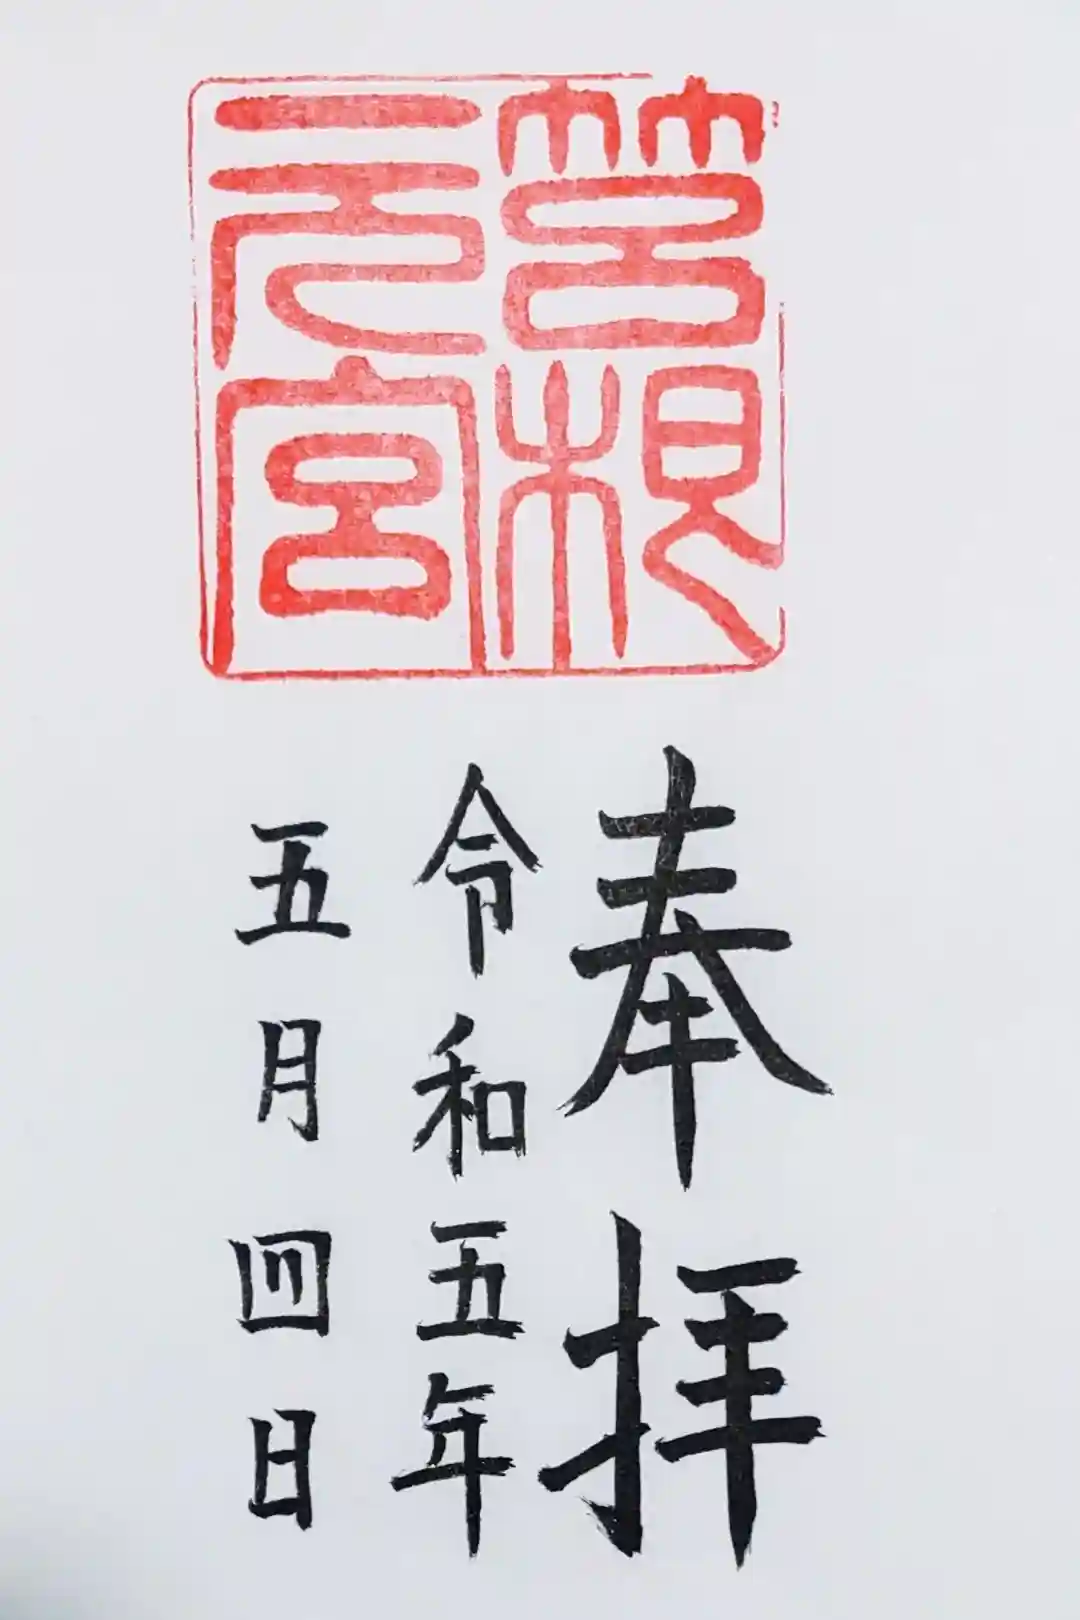 筥根
元宮
奉拝
令和五年
五月四日